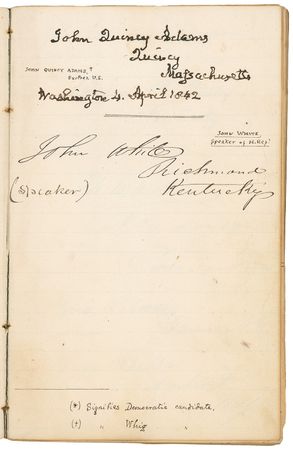 John Quincy Adams
Quincy
JOHN QUINCY ADAMS †
Massachusetts
Washington 4. April 1842
JOHN WHITE
Speaker of H. Rep.
John White
Richmond
(Speaker)
Kentucky
(*) Signifies Democratic candidate.
(+) " Whig "